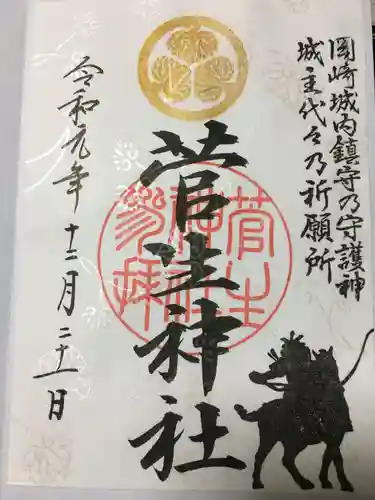 岡崎城内鎮守乃守護神
城主代々乃祈願所
菅生神社
菅生神社参拝
令和元年十二月二十一日